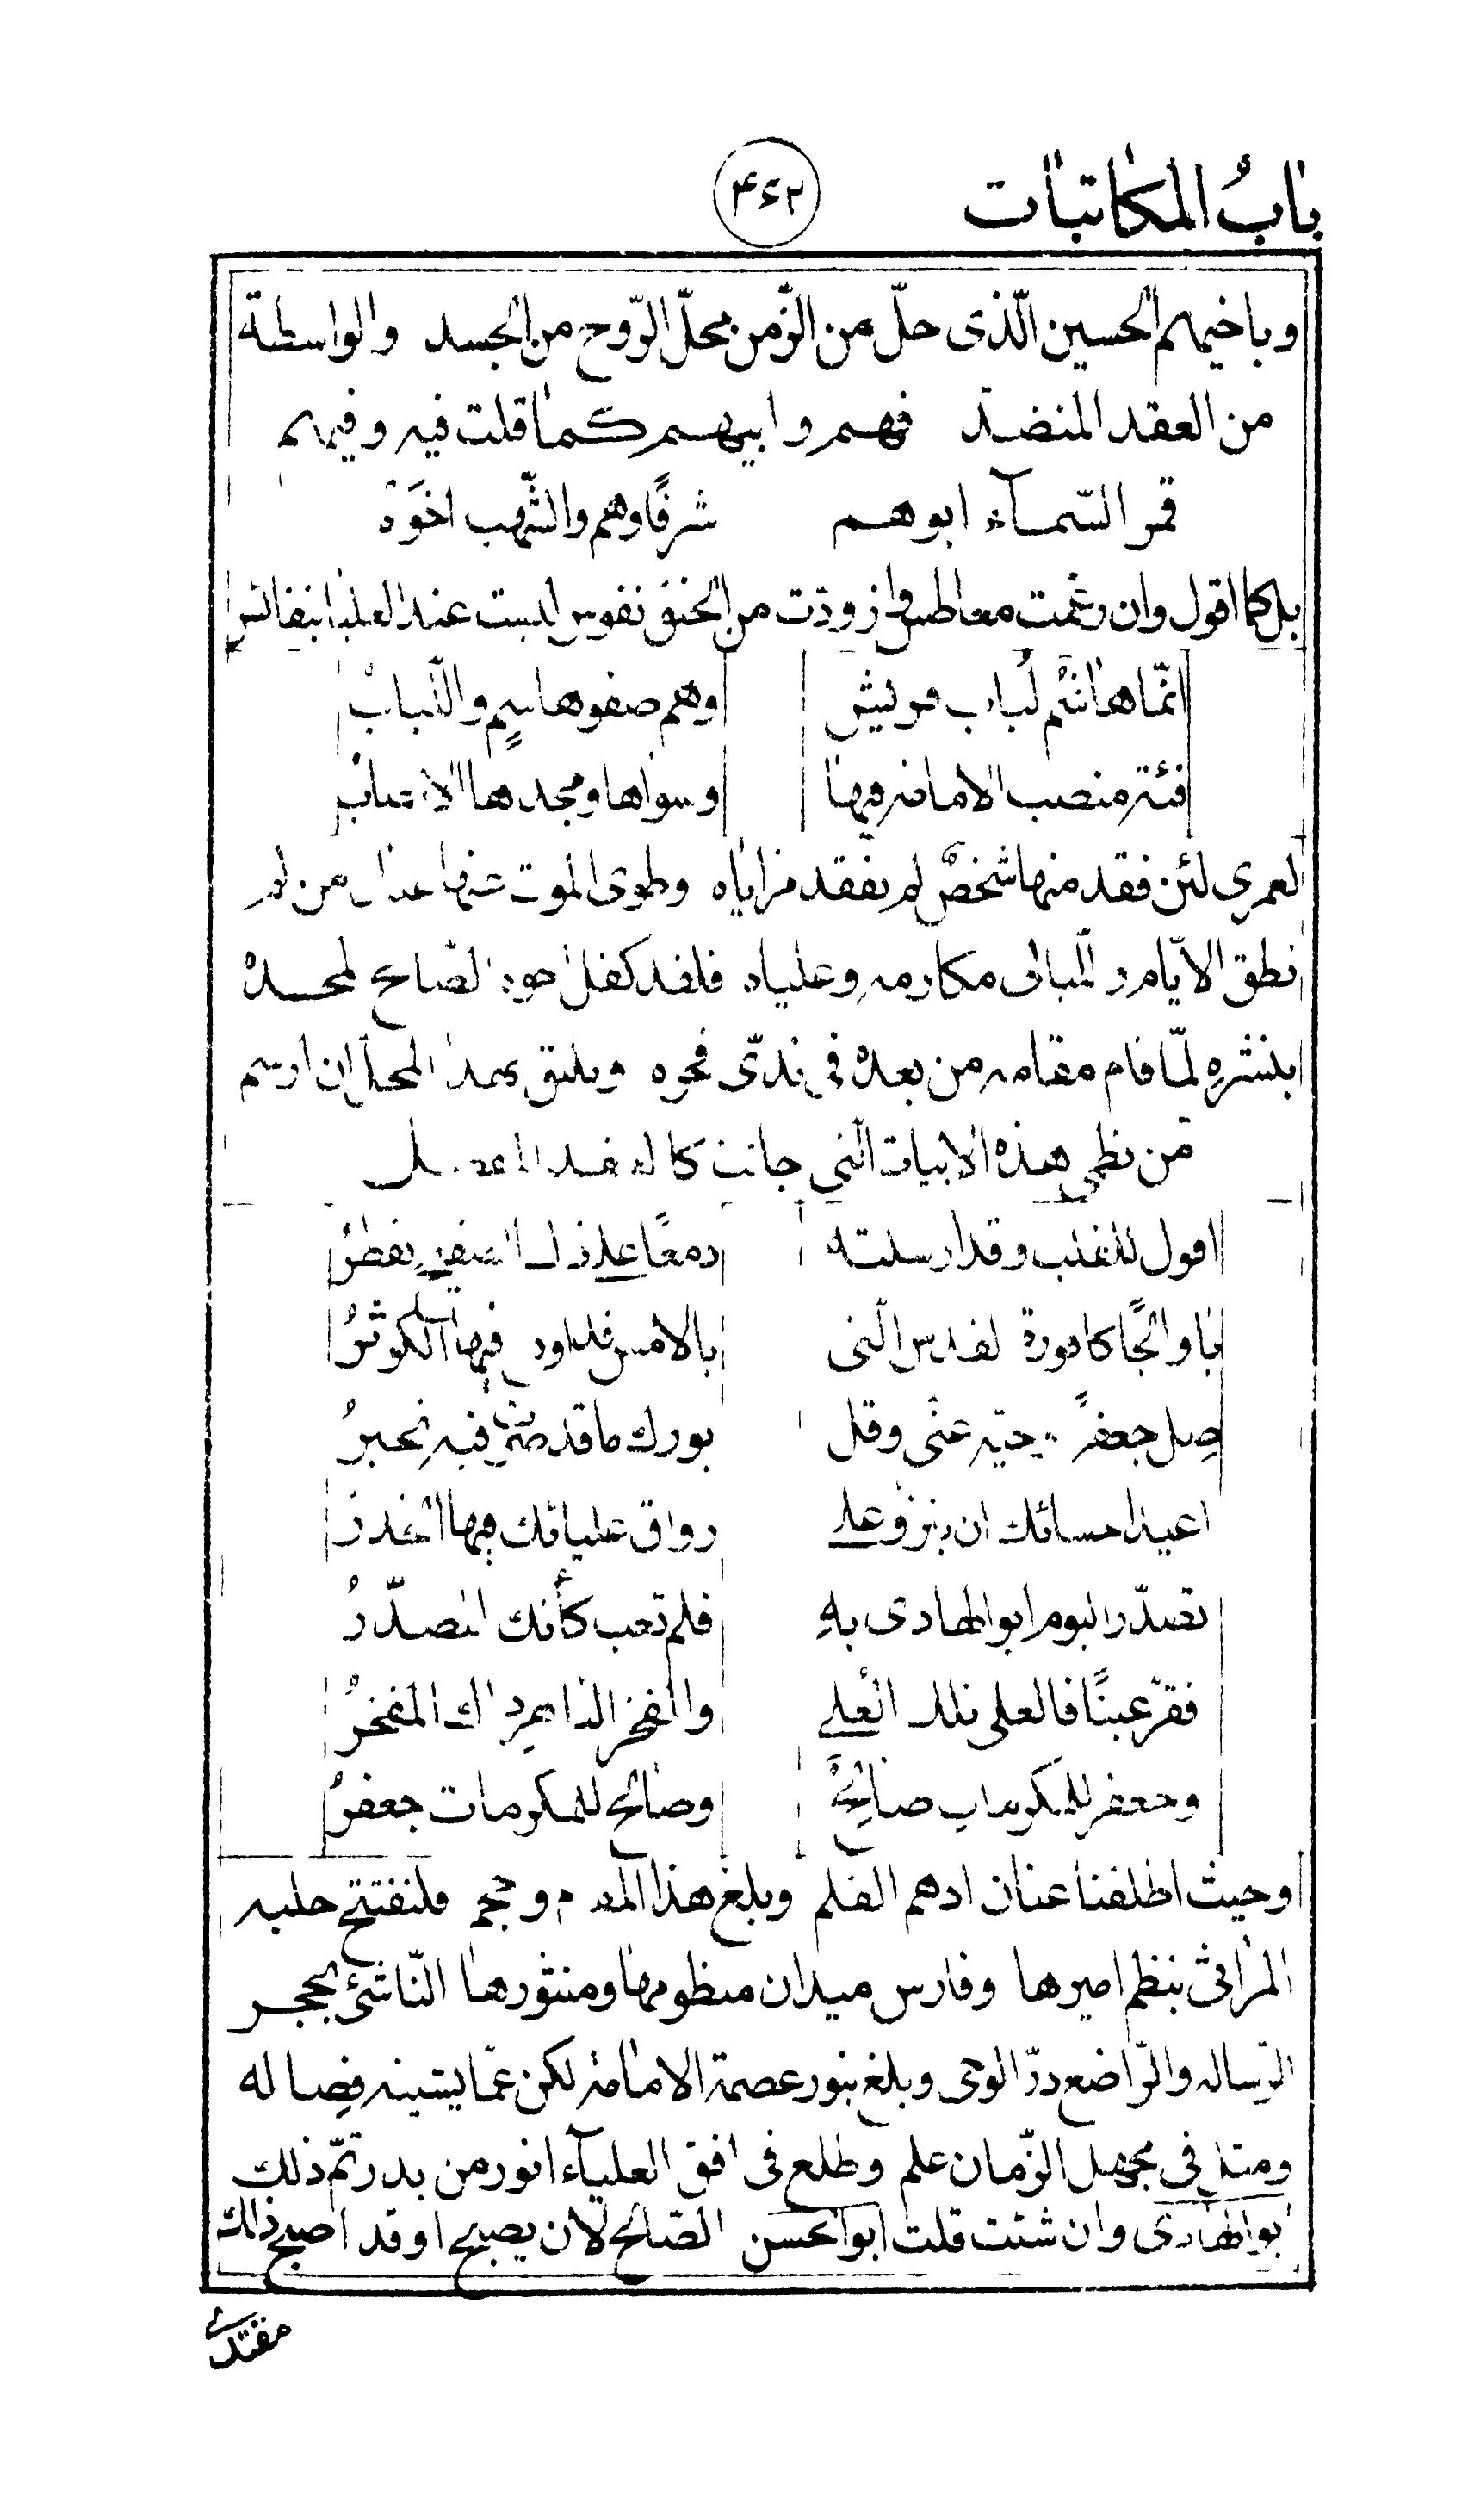 باب المكاتبات
۴۶۲
وباخيهم الحسين الّذى حلّ من الزّمن محلّ الرّوح من الجسد والواسطة
من العقد المنضد فهم وابيهم كما قلت فيه وفيهم
قمر السّمآء ابوهم شرفًا وهم والشّهب اخوة
بل كما اقول وان رغمت معاطس وازودّت من الحنق نفوس ليست عند العليا بنفائس
انّما هاشم لُباب قريش وهم صفوها سم واللّباب
فئة منصب الامامة فيها وسواها ومجدها الاعتاب
لعمرى لئن فقد منها شخصٌ لم تفقد مزاياه وطوى الموت عنها من لم
نطق الايّام والليالى مكارمه وعلياه فلقد كفل الصّالح لمجده
بنشرهِ لمّا قام مقامه من بعده فى ندىّ فخره ويليق بهذا المحلّ ان ارسم
من نظمى هذه الابيات الّتى جائت كالعقد المفصل
اقول للقلب وقد ارسلته دمعًا على ذاك يقطرُ
بالامس فيها الكوثرُ
صِل جعفرًا عنّى وقل بورك ما قدمت فيه تحبرُ
اعيذ احسائك ان تنزو على رواق عليائك فيها
تصدّر اليوم ابو الهادى بهِ فلم تغب كأنك المصدّرُ
فقرّ عينًا فالعلى تلك العلى والفخر ذاك المفخرُ
وجعفر للمكرمات صالحٌ وصالح للمكرمات جعفرُ
وحيث اطلقنا عنان ادهم القلم وبلغ هذا المقام وحجم فلنفتتح حلبه
المراثى بنظم اميرها وفارس ميدان منظومها ومنثورها النّاشئ بحجر
الرّساله والرّاضع درّ الوحى وبلغ بنور عصمة الامامة لكن عمّا يشينه فِصاله
ومنا فى مجهل الزّمان علم وطلع فى افق العليآء انور من بدر تمّ ذلك
ابو الهادى وان شئت قلت ابو الحسن الصّالح لان يصبح او قد اصبح ذلك
مقتدى